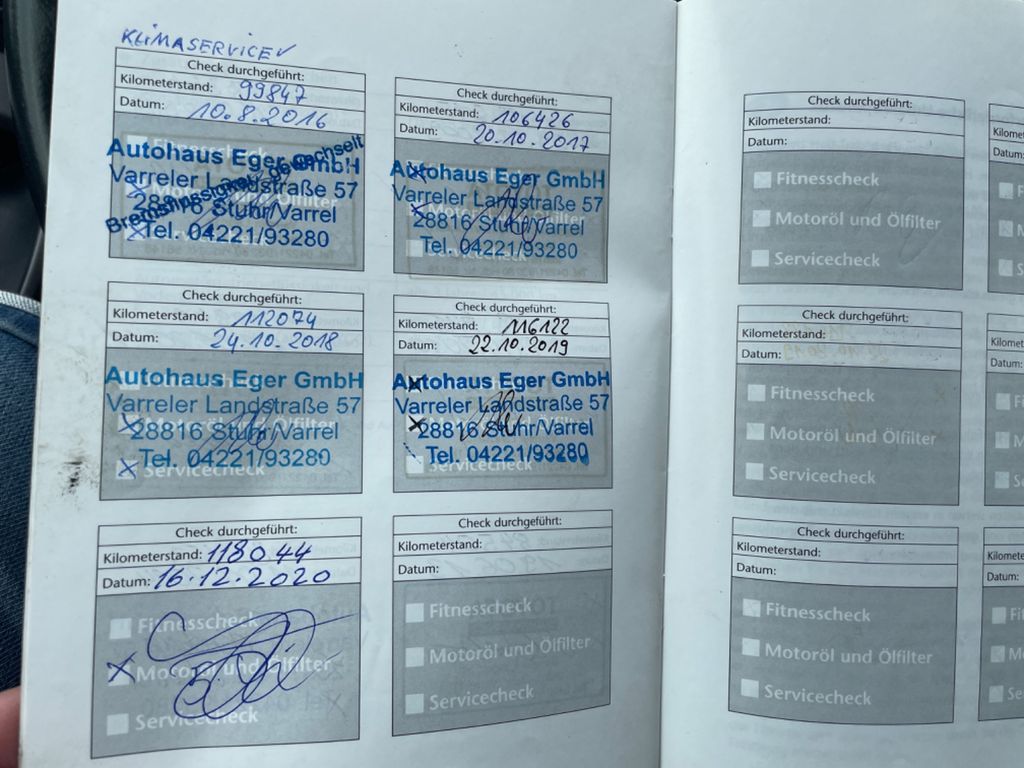 KLIMASERVICE
Check durchgeführt:
Kilometerstand: 99847
Datum: 10.8.2016
Autohaus Eger GmbH
Varreler Landstraße 57
28816 Stuhr/Varrel
Tel. 04221/93280
Bremsflüssigkeit gewechselt
Check durchgeführt:
Kilometerstand: 106426
Datum: 20.10.2017
Autohaus Eger GmbH
Varreler Landstraße 57
28816 Stuhr/Varrel
Tel. 04221/93280
Check durchgeführt:
Kilometerstand: 112074
Datum: 24.10.2018
Autohaus Eger GmbH
Varreler Landstraße 57
28816 Stuhr/Varrel
Tel. 04221/93280
Servicecheck
Check durchgeführt:
Kilometerstand: 116122
Datum: 22.10.2019
Autohaus Eger GmbH
Varreler Landstraße 57
28816 Stuhr/Varrel
Tel. 04221/93280
Servicecheck
Check durchgeführt:
Kilometerstand: 118044
Datum: 16.12.2020
Fitnesscheck
Motoröl und Ölfilter
Servicecheck
Check durchgeführt:
Kilometerstand:
Datum:
Fitnesscheck
Motoröl und Ölfilter
Servicecheck
Check durchgeführt:
Kilometerstand:
Datum:
Fitnesscheck
Motoröl und Ölfilter
Servicecheck
Check durchgeführt:
Kilometerstand:
Datum:
Fitnesscheck
Motoröl und Ölfilter
Servicecheck
Check durchgeführt:
Kilometerstand:
Datum:
Fitnesscheck
Motoröl und Ölfilter
Servicecheck